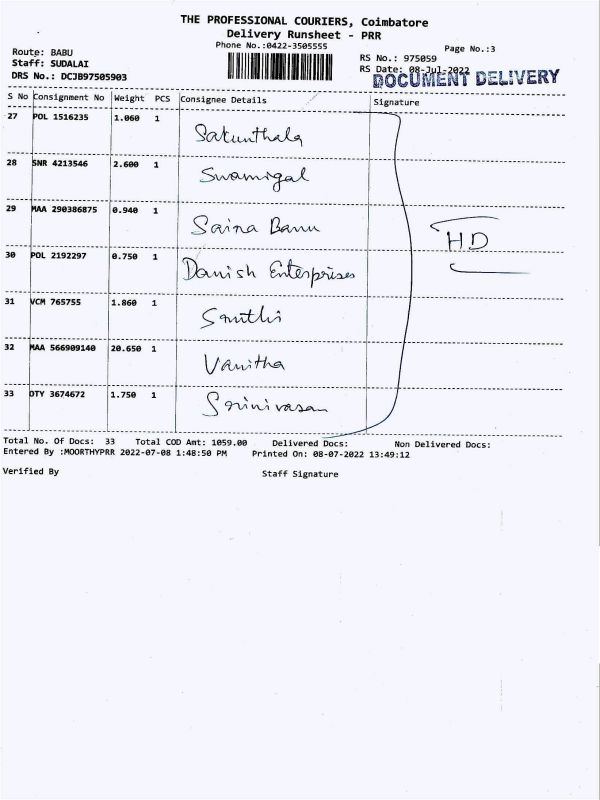 THE PROFESSIONAL COURIERS, Coimbatore
Delivery Runsheet - PRR
Phone No.:0422-3505555
Page No.:3
Route: BABU
Staff: SUDALAI
DRS No.: DCJB97505903
RS No.: 975059
RS Date: 08-Jul-2022
DOCUMENT DELIVERY
S No Consignment No Weight PCS Consignee Details Signature
27 POL 1516235 1.060 1 Sakunthala
28 SNR 4213546 2.600 1 Swamigal
29 MAA 290386875 0.940 1 Saina Banu
30 POL 2192297 0.750 1 Danish Enterprises
31 VCM 765755 1.860 1 Santhi
32 MAA 566909140 20.650 1 Vanitha
33 OTY 3674672 1.750 1 Srinivasan
HD
Total No. Of Docs: 33 Total COD Amt: 1059.00 Delivered Docs: Non Delivered Docs:
Entered By :MOORTHYPRR 2022-07-08 1:48:50 PM Printed On: 08-07-2022 13:49:12
Verified By Staff Signature